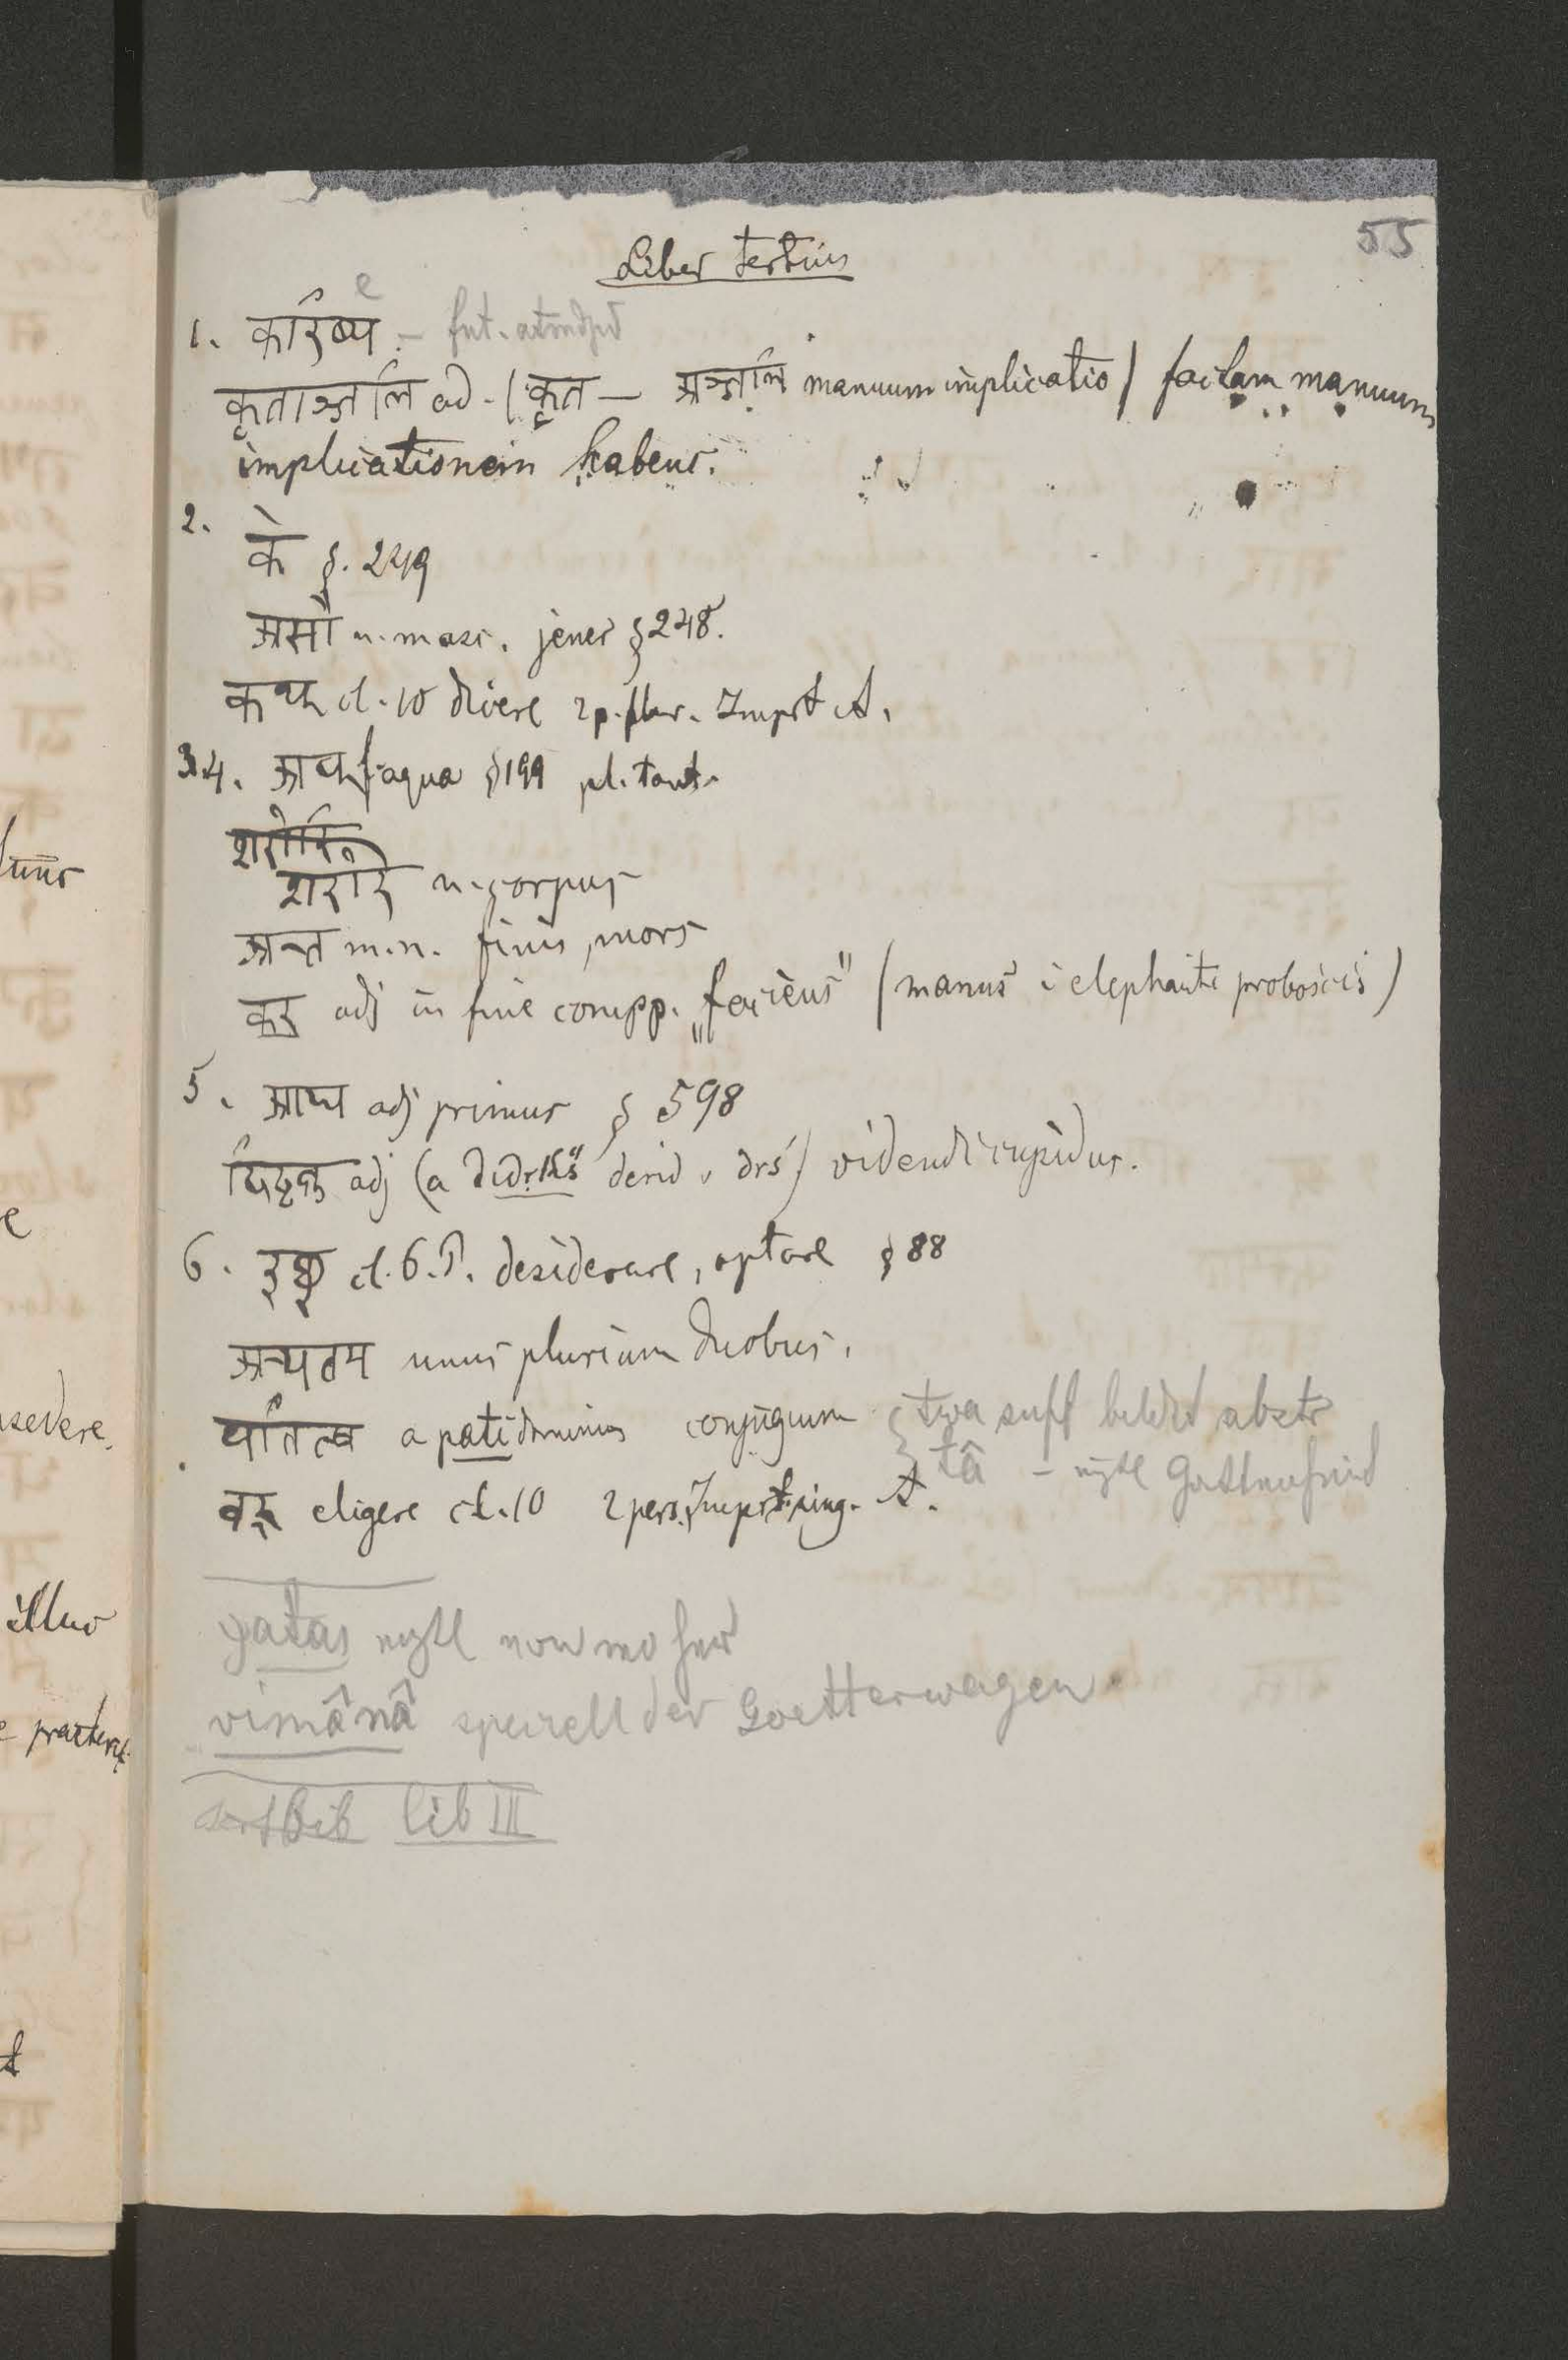 55
Liber tertius
e
1. करिष्य – fut. atmdpd
कृताञ्जलि ad. (कृत — अञ्जलि manuum implicatio) factam manuum
implicationem habens.
2.
के §. 249
असौ n. masc. jener § 248.
कथ cl. 10 dicere 2 p. plur. Imprt A.
3.4. अप् f. aqua § 199 pl. tant.
शरीर n. corpus
अन्त m. n. finis, mors
कर adj in fine compp. „faciens" (manus i elephanti proboscis)
5. आद्य adj primus § 598
दिदृक्षु adj (a didṛkš desid v drś) videndi cupidus.
6. इष् cl. 6. P. desiderare, optare § 88
अन्यतम unus plurium duobus.
पतित्व a pati dominus conjugium { twa suff bildet abstr
tâ –
वर eligere cl. 10 2 pers. Imprt. sing. A.
yatas
vimânâ speciell der Goetterwagen
lib III
luus
e
sedere.
illuo
e praeterit
t